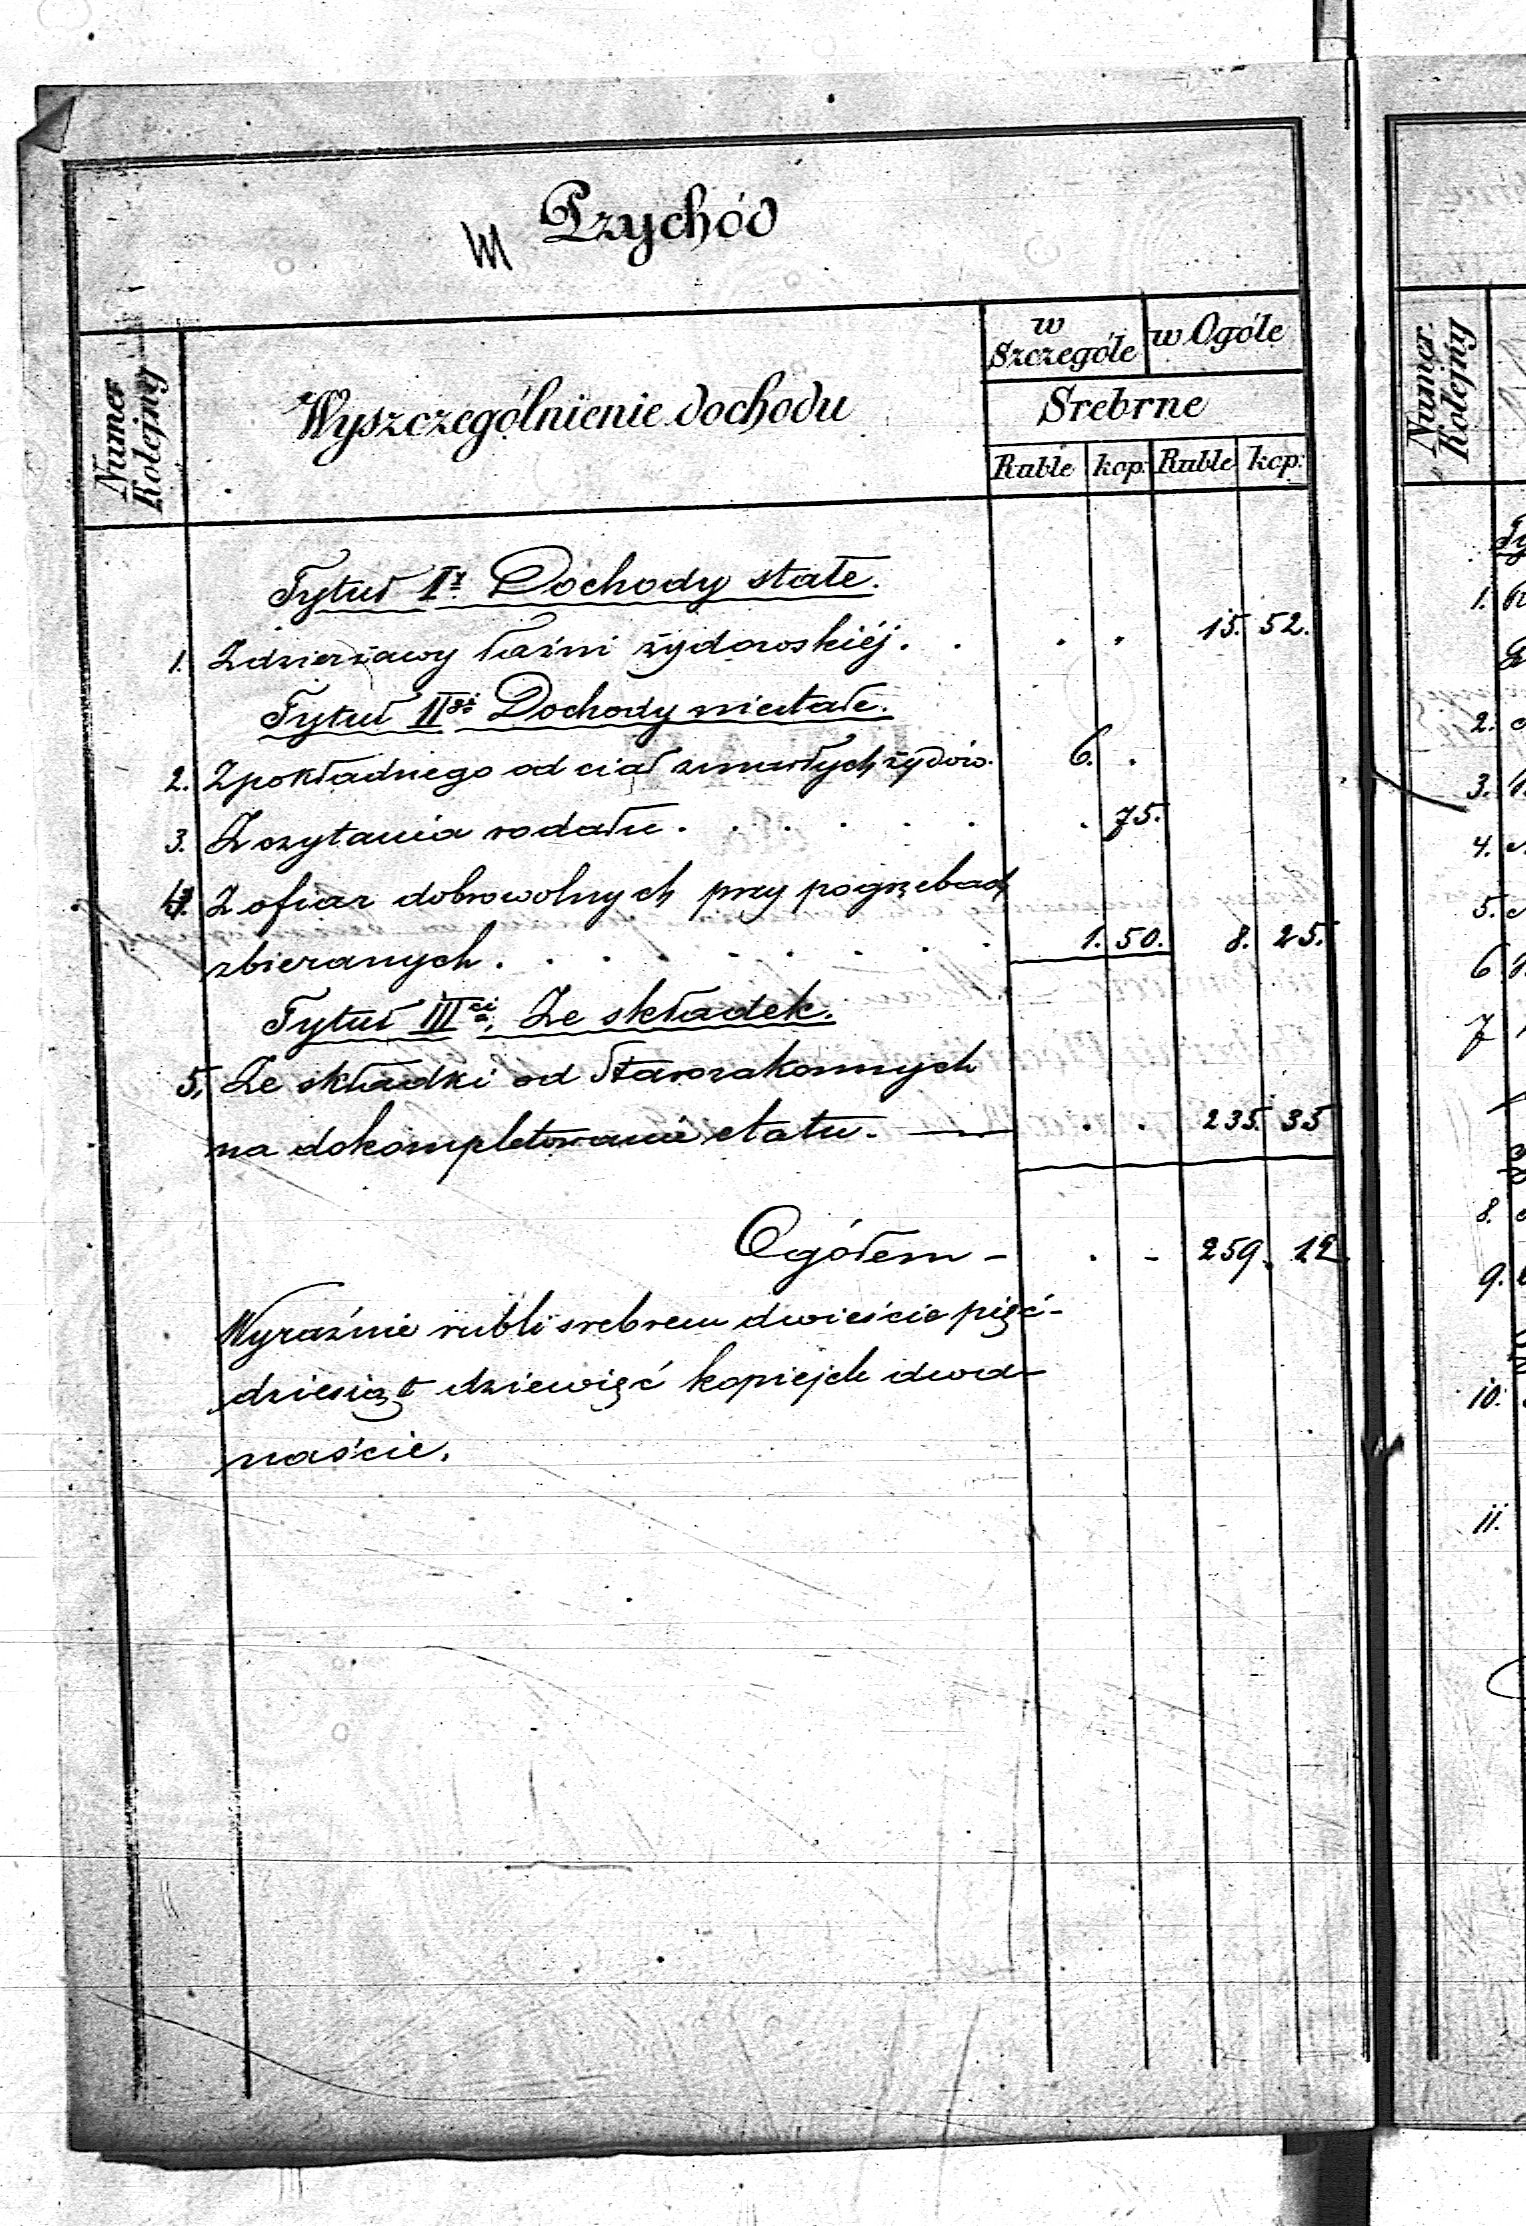 Przychód
Numer Kolejny
Wyszczególnienie dochodu
w Szczególe
w Ogóle
Srebrne
Ruble kop: Ruble kop:
Tytuł I֊y. Dochody stałe.
1. Z dzierżawy łaźni żydowskiéj. . . . 15. 52.
Tytuł II gi Dochody niestałe.
2. Z pokładnego od ciał zmarłych żydów. 6. .
3. Z czytania rodału . . . . . . . 75.
4. Z ofiar dobrowolnych przy pogrzebach
zbieranych . . . . . . 1. 50. 8. 25.
Tytuł III ci Ze składek.
5. Ze składki od Starozakonnych
na dokompletowanie etatu. — . . 235. 35
Ogółem - . - 259. 12
Wyraźnie rubli srebrem dwieście pięć-
dziesiąt dziewięć kopiejek dwa-
naście.
Numer Kolejny
1.
2.
3.
4.
5.
6
7
8.
9.
10.
11.